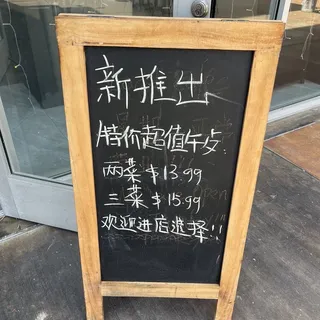 新推出
特价超值午歺:
两菜 $13.99
三菜 $15.99
欢迎进店選择!!